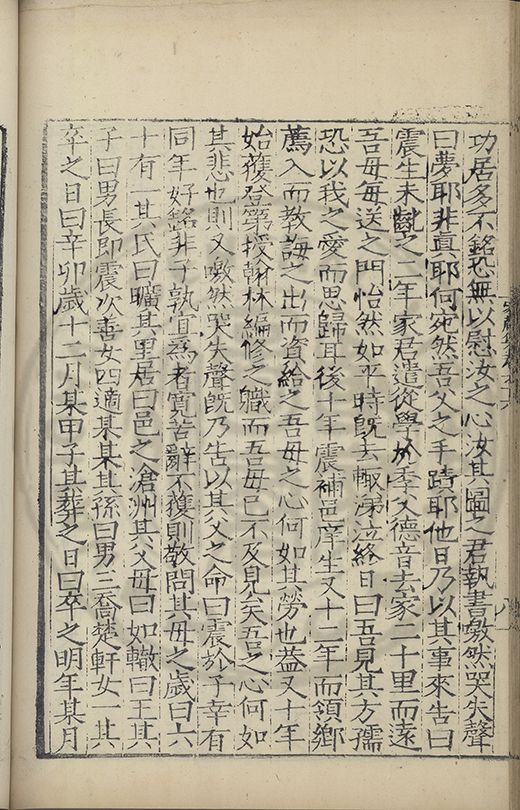 功居多不銘恐無以慰汝之心汝其圖之君執書皦然哭失聲
曰夢耶非真耶何宛然吾父之手蹟耶他日乃以其事來告曰
震生未齔之二年家君遣從學於季父德音去家二十里而遠
吾母每送之門怡然如平時旣去輒涕泣終日曰吾見其方孺
恐以我之愛而思歸耳後十年震補邑庠生又十二年而領鄉
薦入而教誨之出而資給之吾母之心何如其勞也蓋又十年
始獲登第授翰林編修之職而吾母已不及見矣吾之心何如
其悲也則又噭然哭失聲旣乃告以其父之命曰震於子幸有
同年好銘非子孰宜為者寬苦辭不獲則敬問其母之歲曰六
十有一其氏曰曠其里居曰邑之滄州其父母曰如轍曰王其
子曰男長即震次善女四適某某其孫曰男三喬楚軒女一其
卒之日曰辛卯歲十二月某甲子其葬之日曰卒之明年某月